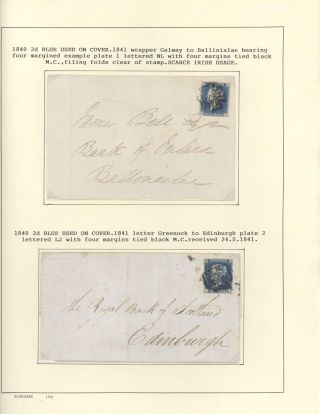 1840 2d BLUE USED ON COVER.1841 wrapper Galway to Ballinislae bearing
four margined example plate 1 lettered NL with four margins tied black
M.C.,filing folds clear of stamp.SCARCE IRISH USAGE.
James Bell
Bank of Ireland
Ballinasloe
1840 2d BLUE USED ON COVER.1841 letter Greenock to Edinburgh plate 2
lettered LJ with four margins tied black M.C.received 24.8.1841.
The Royal Bank of Scotland
Edinburgh